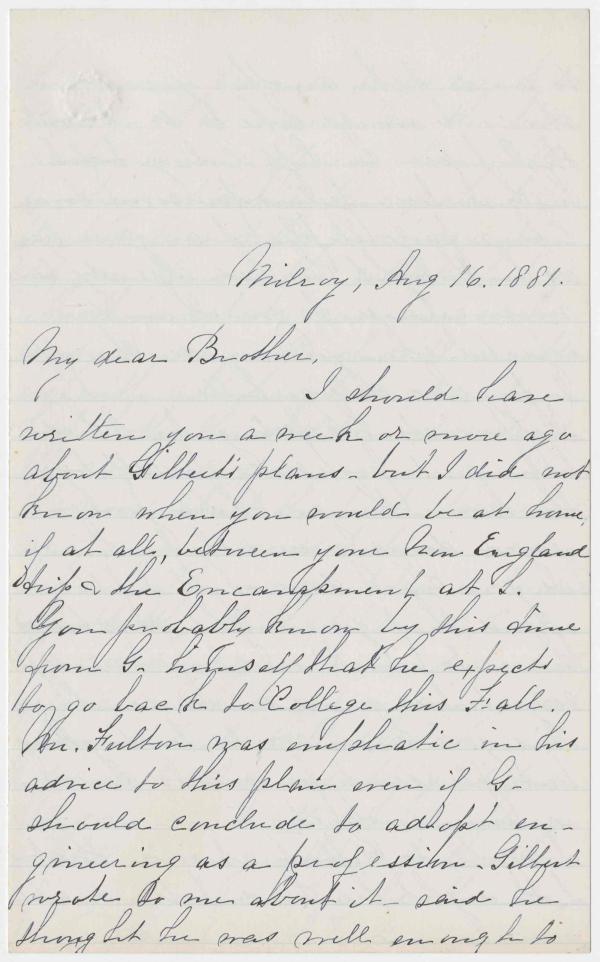 Milroy, Aug 16. 1881.
My dear Brother,
I should have
written you a week or more ago
about Gilbert's plans - but I did not
know when you would be at home,
if at all, between your New England
trip & the Encampment at L.
You probably know by this time
from G. himself that he expects
to go back to College this Fall.
Mr. Fulton was emphatic in his
advice to this plan even if G-
should conclude to adopt en-
gineering as a profession - Gilbert
wrote to me about it - said he
thought he was well enough to